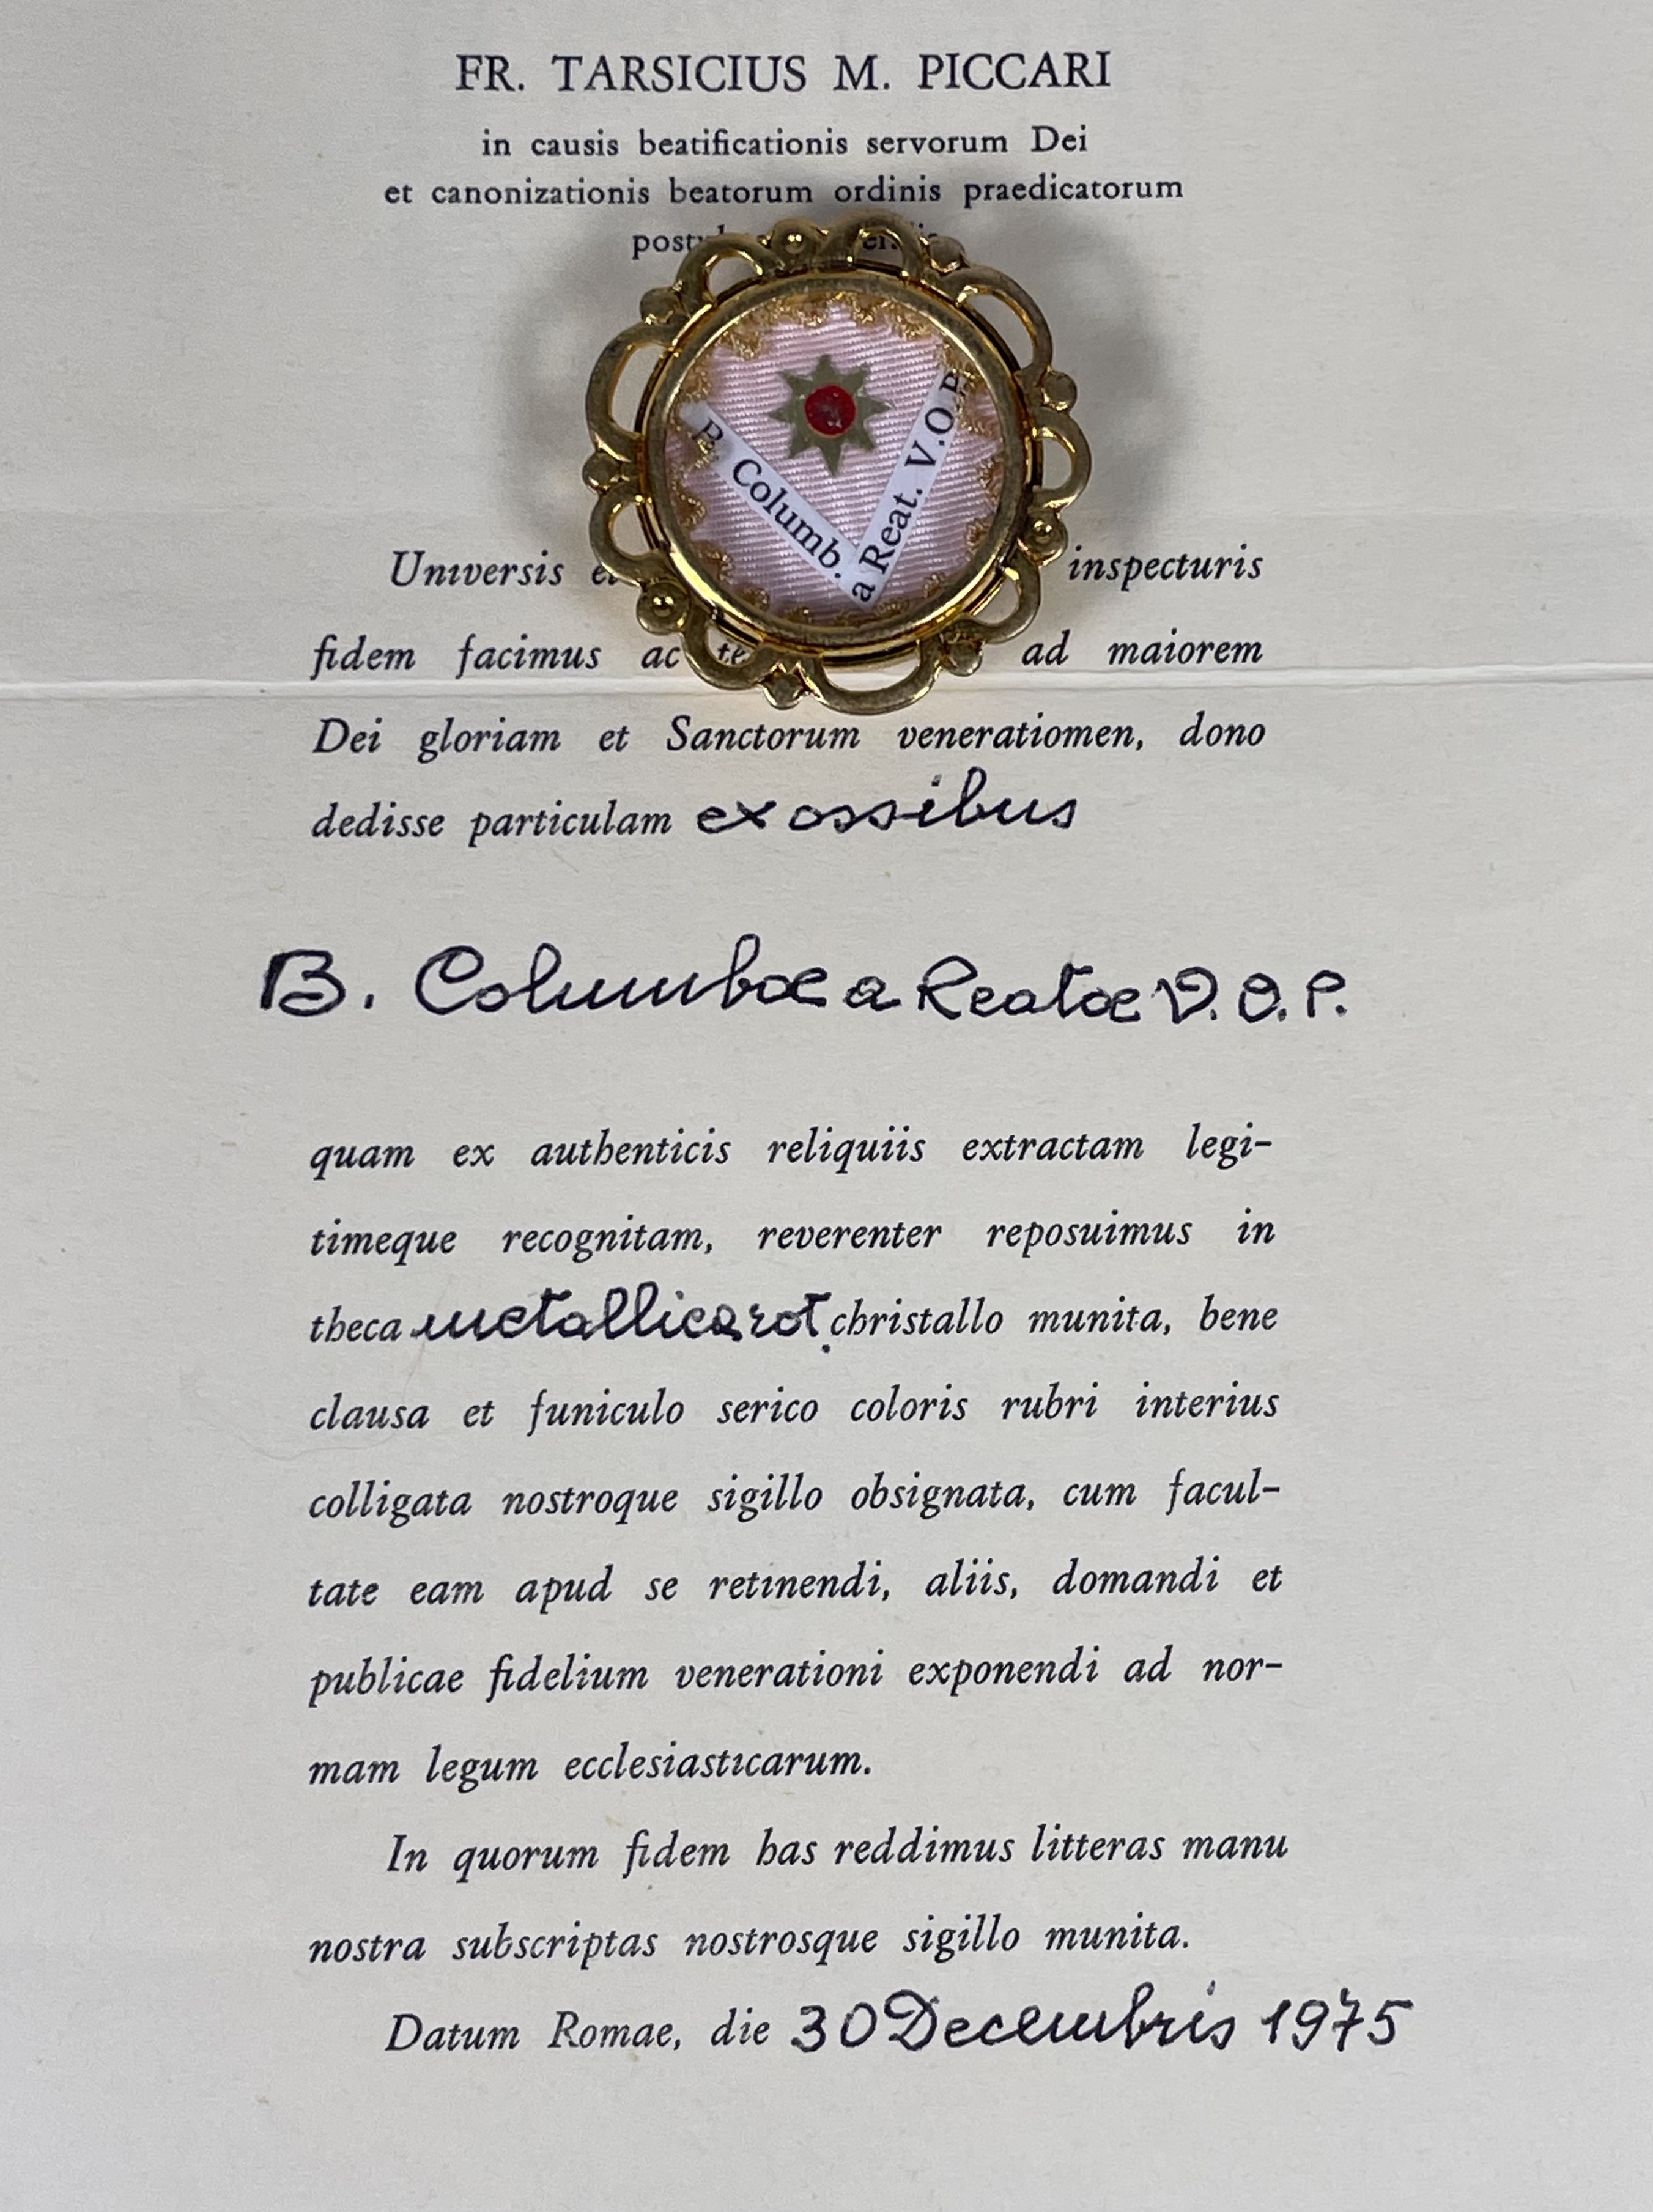 FR. TARSICIUS M. PICCARI
in causis beatificationis servorum Dei
et canonizationis beatorum ordinis praedicatorum
B. Columb.
a Reat. V.O.P.
Universis inspecturis
fidem facimus ac ad maiorem
Dei gloriam et Sanctorum veneratiomen, dono
dedisse particulam ex ossibus
B. Columbae a Reatae V.O.P.
quam ex authenticis reliquiis extractam legi-
timeque recognitam, reverenter reposuimus in
theca metallica rot. christallo munita, bene
clausa et funiculo serico coloris rubri interius
colligata nostroque sigillo obsignata, cum facul-
tate eam apud se retinendi, aliis, domandi et
publicae fidelium venerationi exponendi ad nor-
mam legum ecclesiasticarum.
In quorum fidem has reddimus litteras manu
nostra subscriptas nostrosque sigillo munita.
Datum Romae, die 30 Decembris 1975